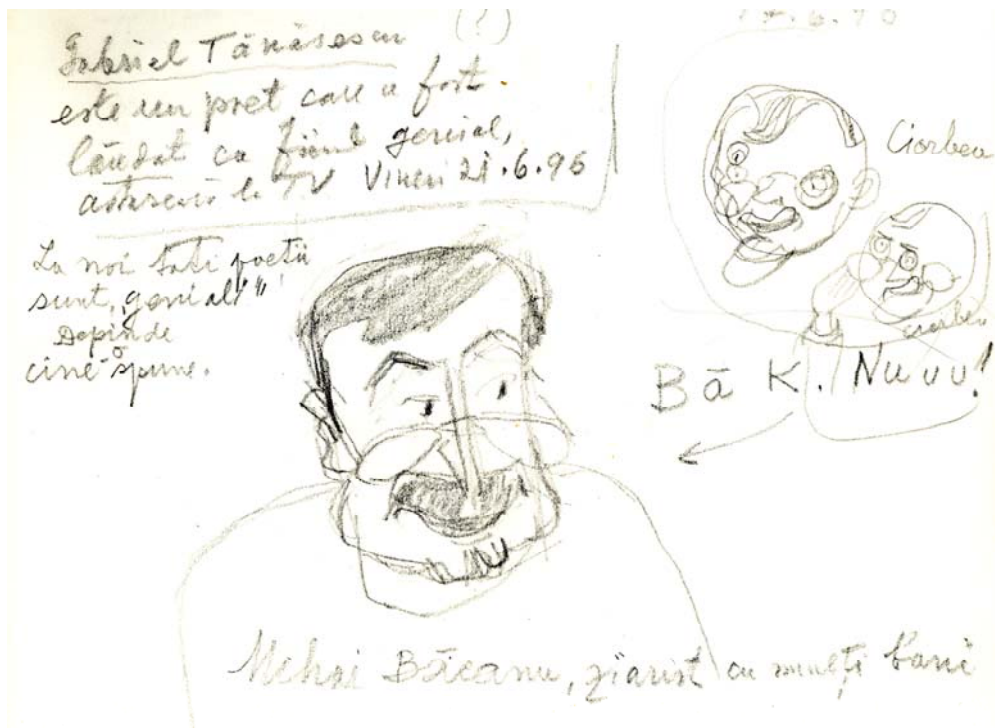 (?)
Gabriel Tănăsescu
este un poet care a fost
lăudat ca fiind genial,
astăseară la TV Vineri 21.6.96
La noi toți poeții
sunt „geniali"
Depinde
cine o spune.
17.6.96
Ciorbea
Ciorbea
Bă K. Nuuu!
Mihai Băcanu, ziarist cu mulți bani